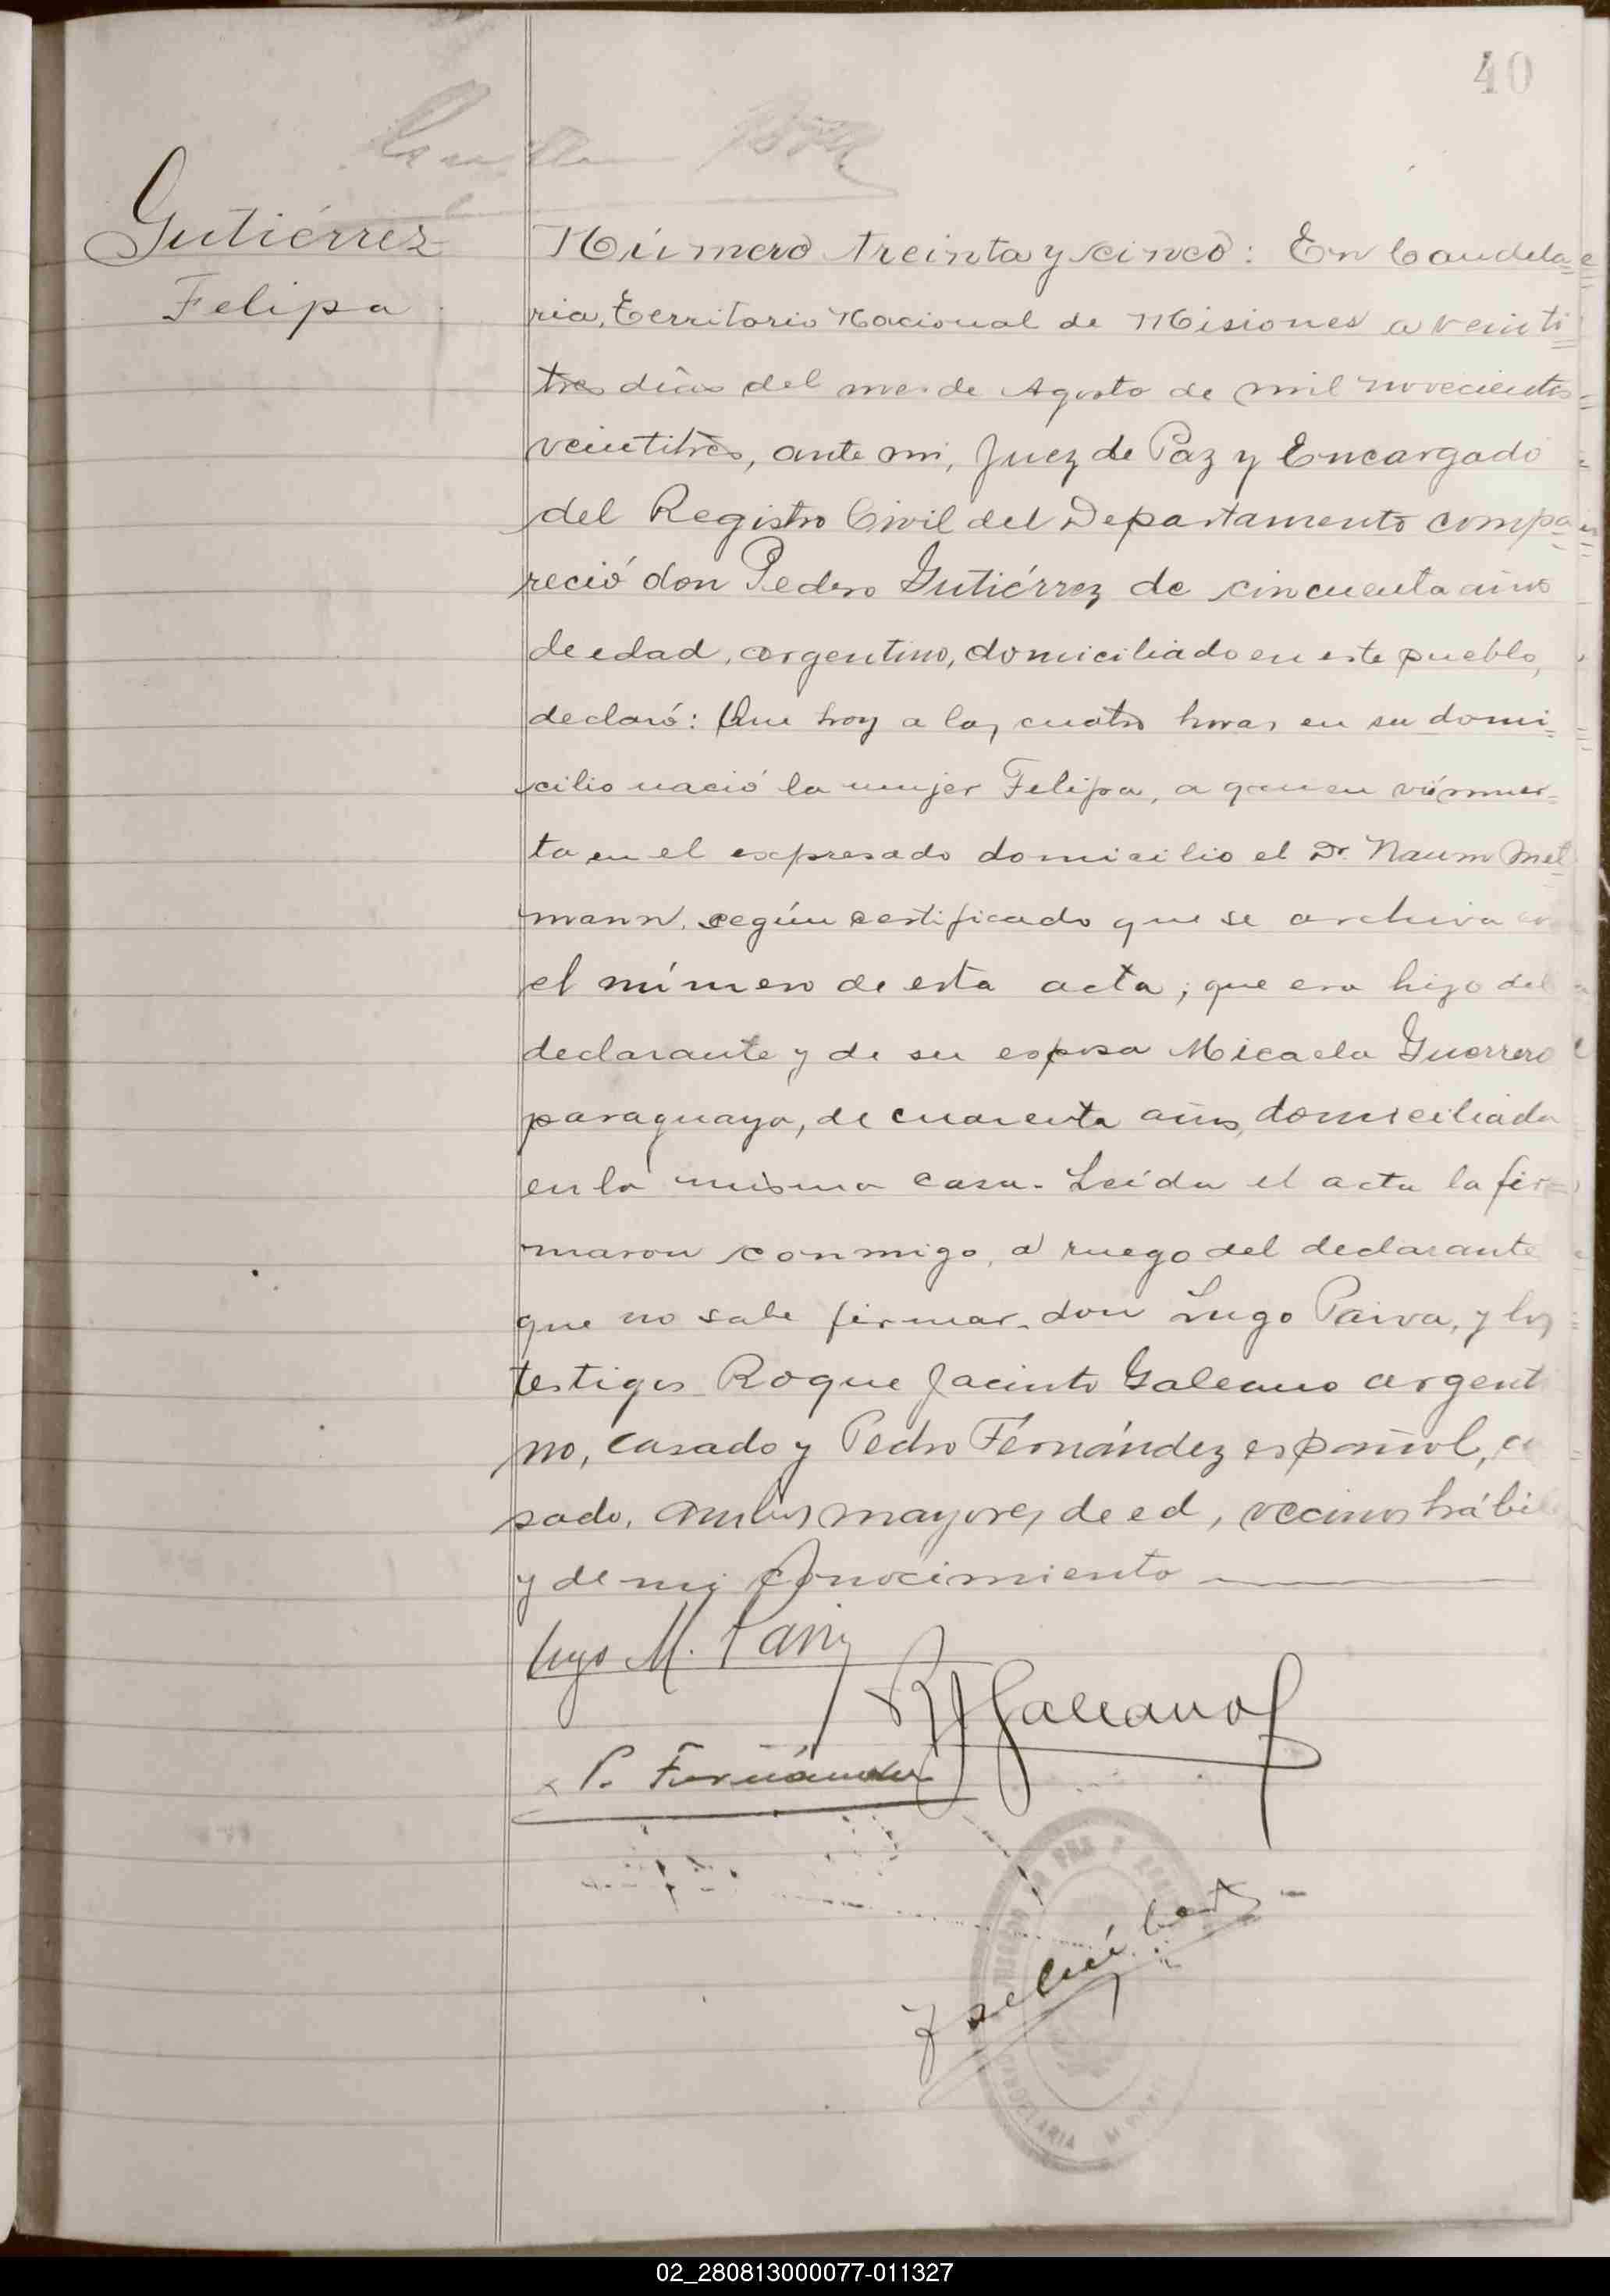 40
Gutiérrez
Felipa
Número treinta y cinco: En Candela=
ria, Territorio Nacional de Misiones a veinti
tres días del mes de Agosto de mil novecientos
veintitrés, ante mi, Juez de Paz y Encargado
del Registro Civil del Departamento compa=
reció don Pedro Gutiérrez de cincuenta años
de edad, argentino, domiciliado en este pueblo,
declaró: Que hoy a las cuatro horas en su domi=
cilio nació la mujer Felipa, a quien vió muer=
ta en el expresado domicilio el Dr. Naum Mel=
mann, según certificado que se archiva
el número de esta acta; que era hijo del
declarante y de su esposa Micaela Guerrero
paraguaya, de cuarenta años, domiciliada
en la misma casa. Leída el acta la fir=
maron conmigo, a ruego del declarante
que no sabe firmar, don Lugo Paiva, y los
testigos Roque Jacinto Galeano argenti
no, casado y Pedro Fernández español, ca
sado, ambos mayores de ed, vecinos hábi
y de mi conocimiento
Lugo M. Paiva
R J Galeano
P. Fernández
CANDELARIA
02_280813000077-011327